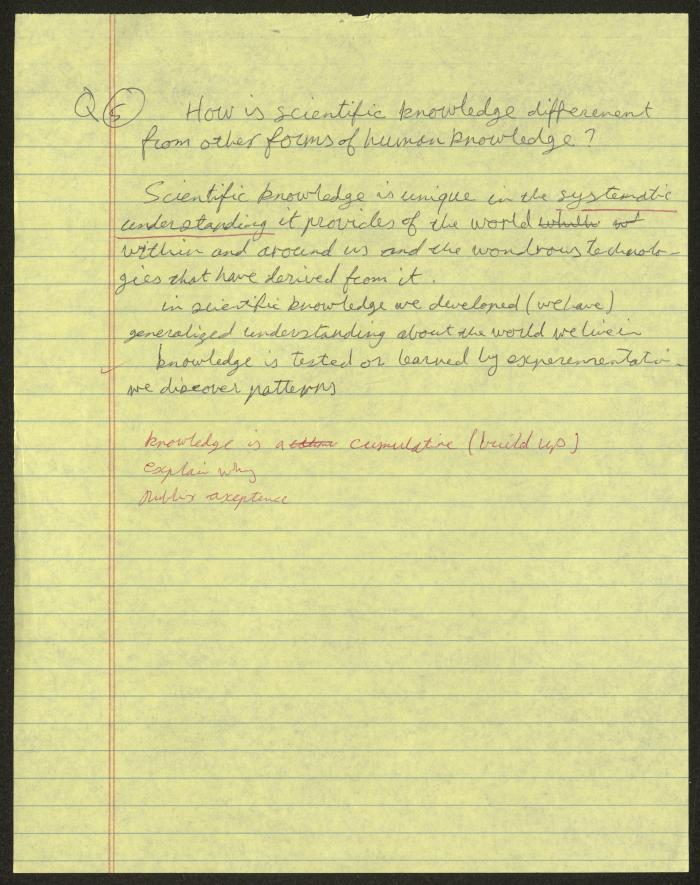 Q 5 How is scientific knowledge differenent
from other forms of human knowledge?
Scientific knowledge is unique in the systematic
understanding it provides of the world
within and around us and the wondrous technolo-
gies that have derived from it.
in scientific knowledge we developed (we have)
generalized understanding about the world we live in
knowledge is tested or learned by experementatio
we discover patterns
knowledge is a cumulative (build up)
explain why
public axeptence